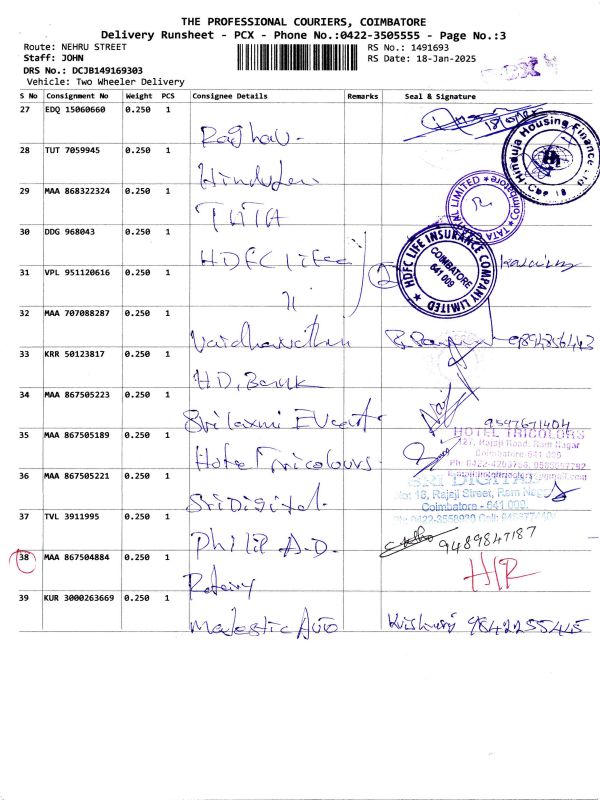 THE PROFESSIONAL COURIERS, COIMBATORE
Delivery Runsheet - PCX - Phone No.:0422-3505555 - Page No.:3
Route: NEHRU STREET
RS No.: 1491693
Staff: JOHN
RS Date: 18-Jan-2025
DRS No.: DCJB149169303
Vehicle: Two Wheeler Delivery
PCX
S No Consignment No Weight PCS Consignee Details Remarks Seal & Signature
27 EDQ 15060660 0.250 1
Raghav -
Hinduja Housing Finance Ltd
28 TUT 7059945 0.250 1
29 MAA 868322324 0.250 1
TATA
30 DDG 968043 0.250 1
HDFC Life
HDFC LIFE INSURANCE COMPANY LIMITED
COIMBATORE
641 009
31 VPL 951120616 0.250 1
32 MAA 707088287 0.250 1
Vaidhanathan
33 KRR 50123817 0.250 1
H.D. Bank
34 MAA 867505223 0.250 1
Srilaxmi Event
9597671404
35 MAA 867505189 0.250 1
Hotel Tricolours.
HOTEL TRICOLORS
127, Rajaji Road, Ram Nagar
Coimbatore 641 009
36 MAA 867505221 0.250 1
Sri Digital.
SRI DIGITAL
No: 18, Rajaji Street, Ram Nagar
Coimbatore - 641 009.
37 TVL 3911995 0.250 1
Philip A.D.
9489847187
38 MAA 867504884 0.250 1
Rotary
H/R
39 KUR 3000263669 0.250 1
Majestic Auto
9842255445